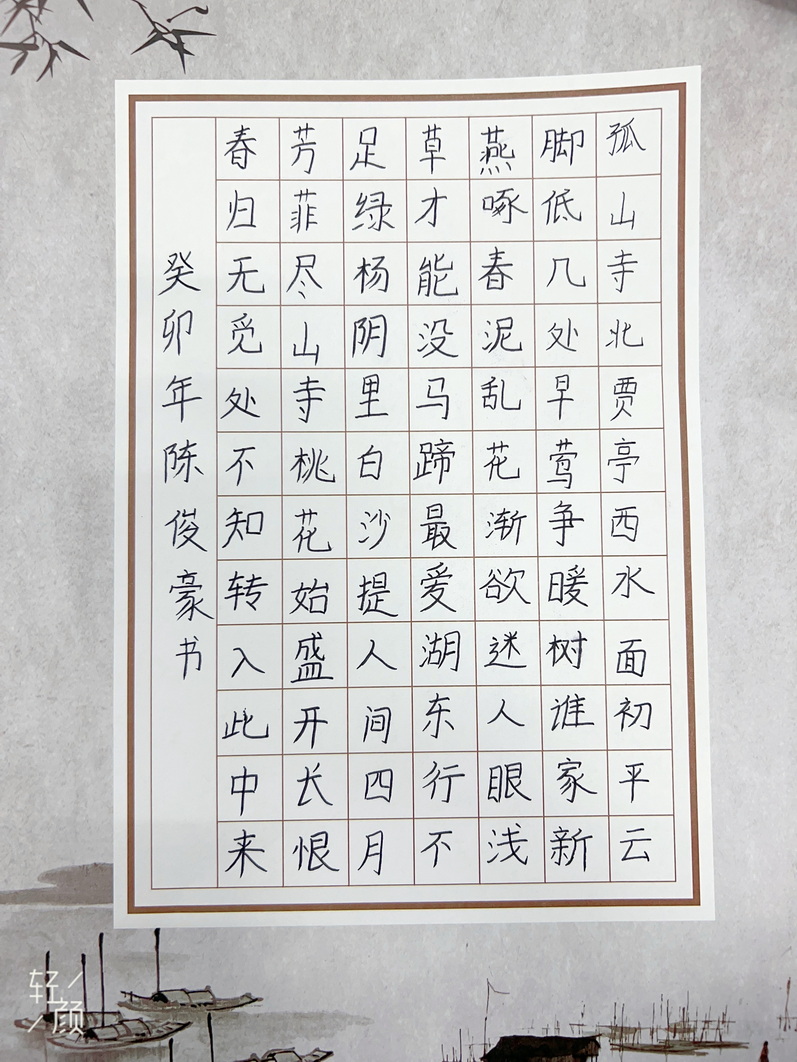 孤山寺北贾亭西水面初平云
脚低几处早莺争暖树谁家新
燕啄春泥乱花渐欲迷人眼浅
草才能没马蹄最爱湖东行不
足绿杨阴里白沙提人间四月
芳菲尽山寺桃花始盛开长恨
春归无觅处不知转入此中来
癸卯年陈俊豪书
轻颜